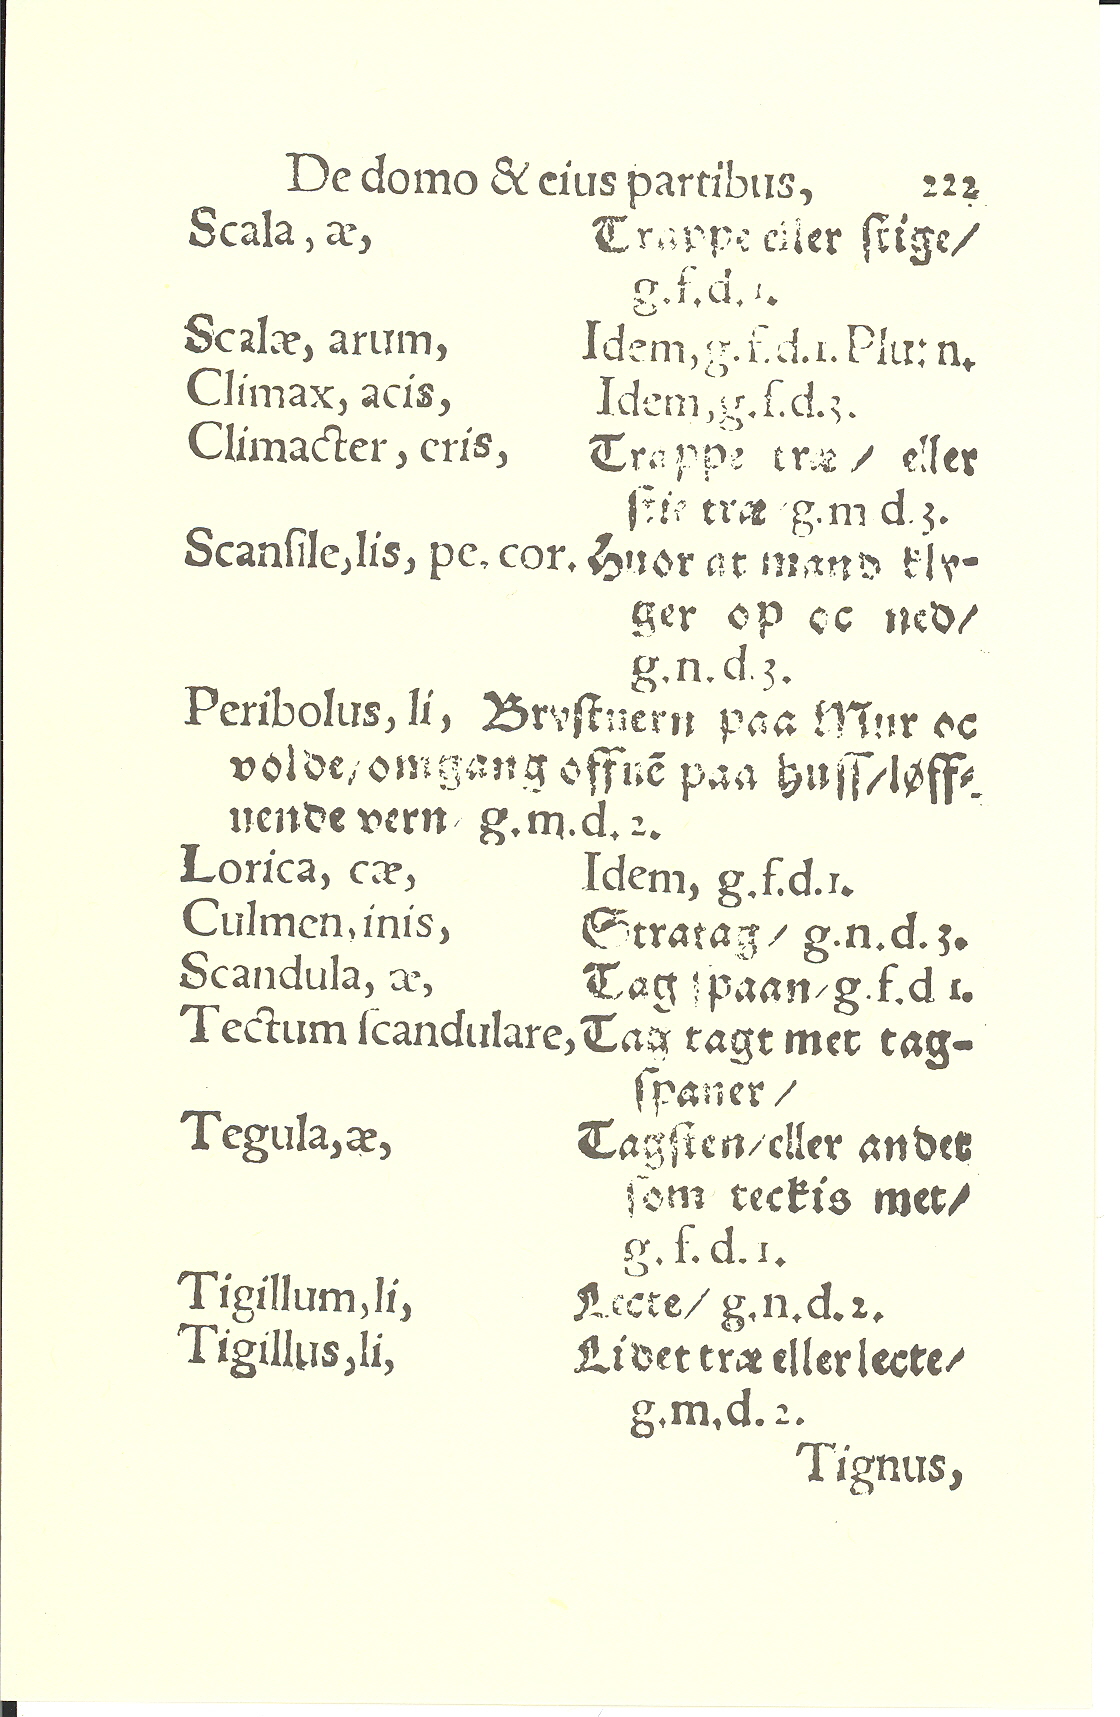 De domo & eius partibus, 222
Scala, æ, Trappe eller ſtige/
g.f.d.1.
Scalæ, arum, Idem, g.f.d.1. Plu: n.
Climax, acis, Idem, g.f.d.3.
Climacter, eris, Trappe træ / eller
ſtie træ / g.m d.3.
Scanſile, lis, pe. cor. Huor at mand kly-
ger op oc ned/
g.n.d.3.
Peribolus, li, Bryſtuern paa Mur oc
volde/ omgang offuē paa huſſ/ løff-
uende vern/ g.m.d.2.
Lorica, cæ, Idem, g.f.d.1.
Culmen, inis, Stratag/ g.n.d.3.
Scandula, æ, Tag ſpaan/ g.f.d 1.
Tectum ſcandulare, Tag tagt met tag-
ſpaner /
Tegula, æ, Tagſten/ eller andet
ſom teckis met/
g.f.d.1.
Tigillum, li, Lecte/ g.n.d.2.
Tigillus, li, Lidet træ eller lecte/
g.m.d.2.
Tignus,